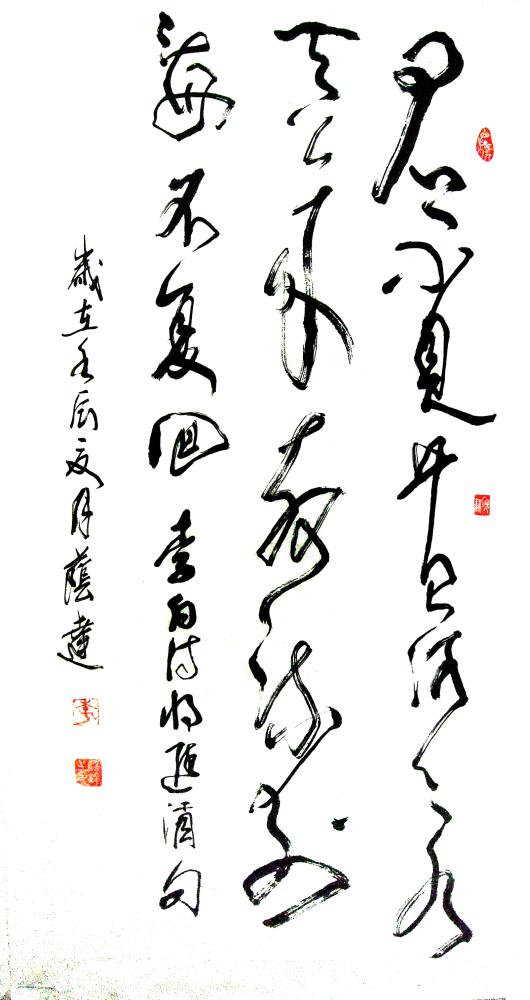 君不見黄河之水
天上来奔流到
海不复回 李白诗将進酒句
歲在壬辰夏月蔭